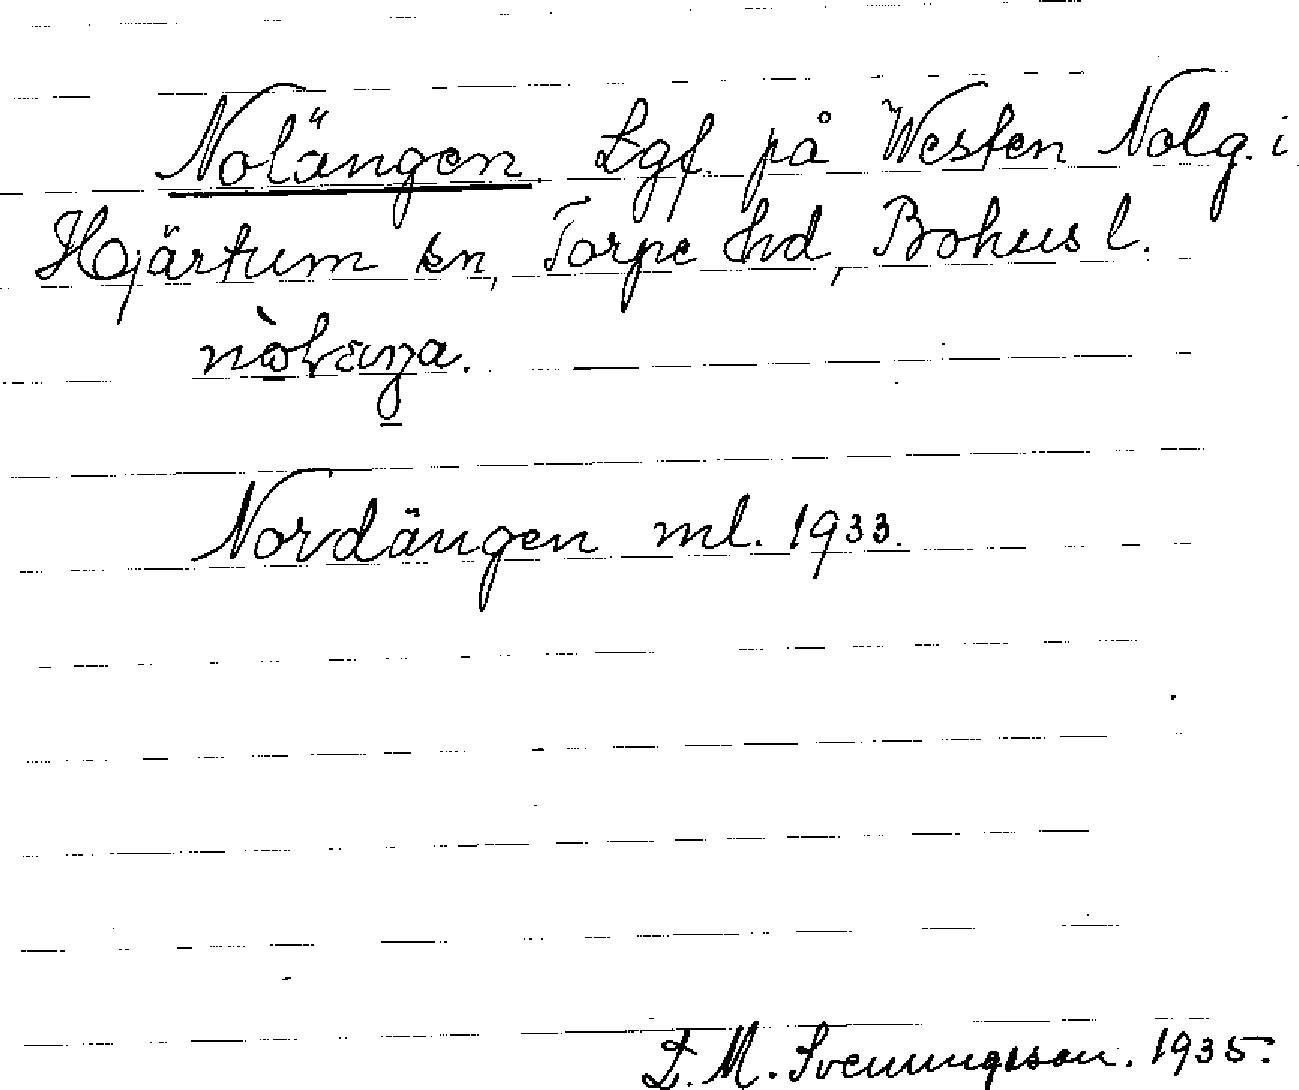 Nolängen. Lgf. på Westen Nolg. i
Hjärtum sn, Torpe hd, Bohus l.
Nordängen ml. 1933.
D. M. Svenningsson. 1935.